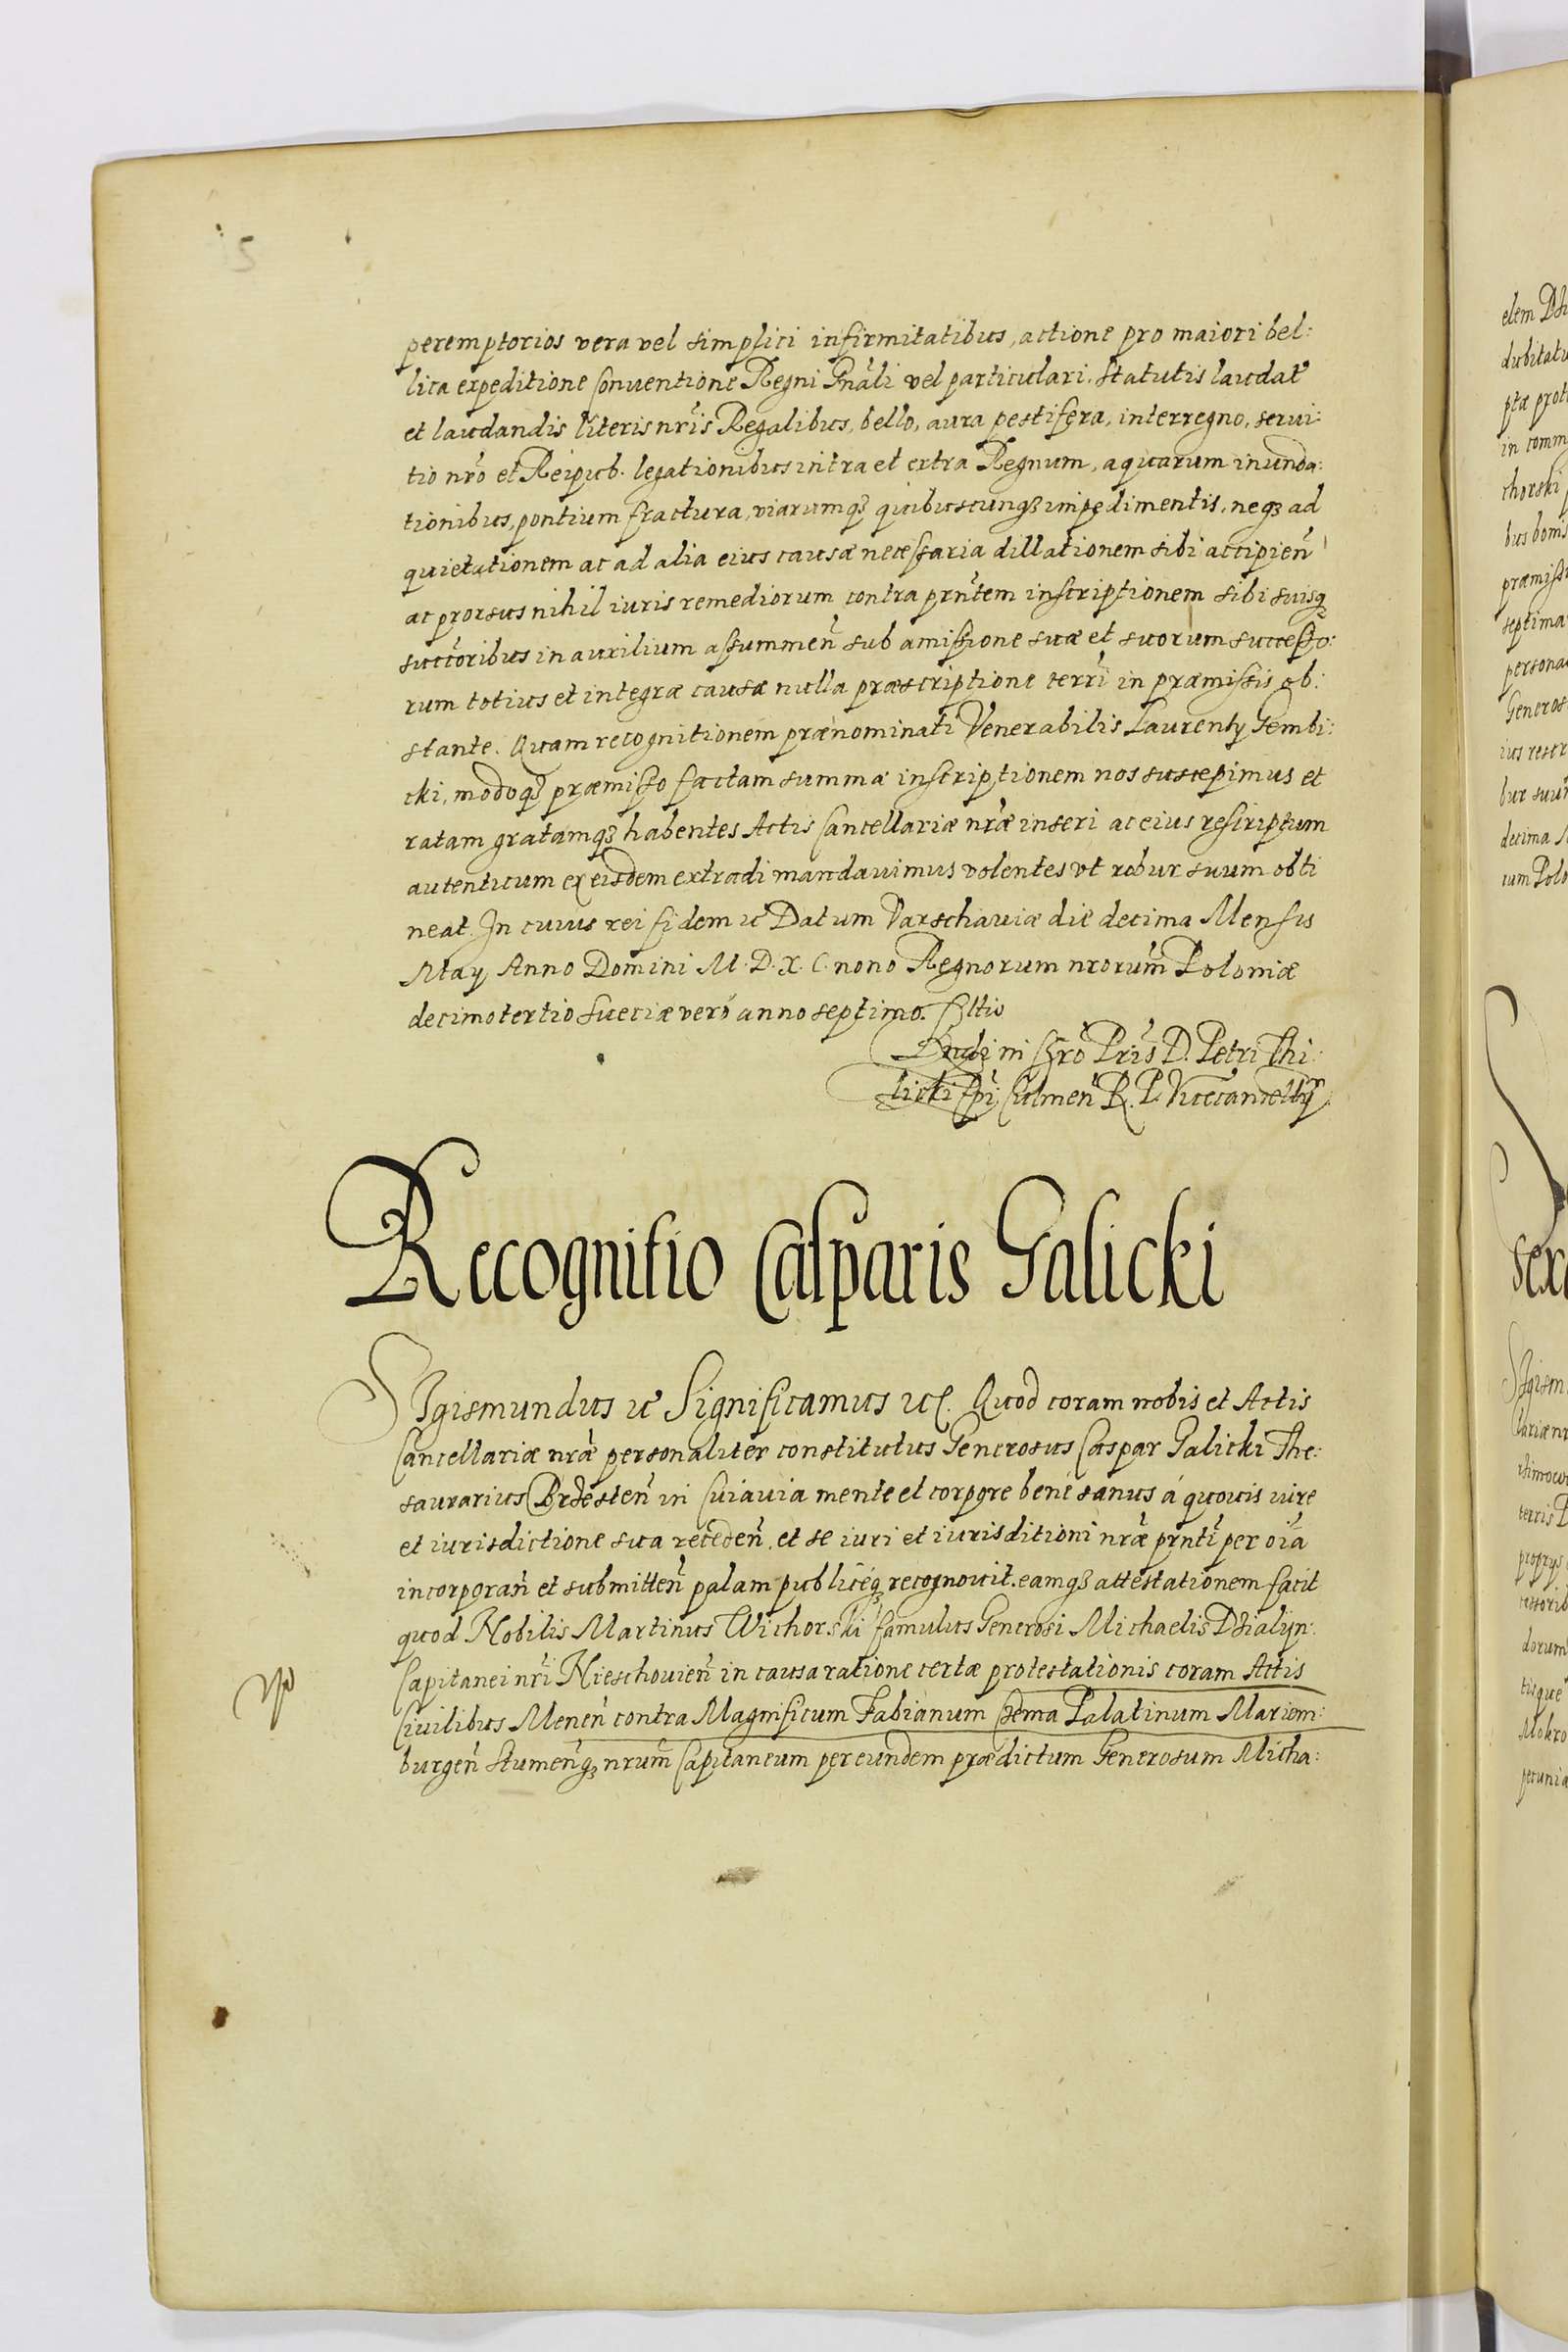 peremptorios vera vel simplici infirmitatibus, actione pro maiori bel:
lica expeditione Conventione Regni Gnãli vel particulari, statutis laudat̃
et laudandis literis nr̃is Regalibus, bello, aura pestifera, interregno, servi:
tio nr̃o et Reipub. legationibus intra et extra Regnum, aquarum inunda:
tionibus, pontium fractura, viarumqꝫ quibuscunqꝫ impedimentis, neqꝫ ad
quietationem ac ad alia eius causæ necessaria dillationem sibi accipien̄
ac prorsus nihil iuris remediorum contra prñtem inscriptionem sibi suisqꝫ
succ̃oribus in auxilium assummen̄ sub amissione suæ et suorum successo:
rum totius et integræ causæ nulla præscriptione terr̃i in præmissis ob:
stante. Quam recognitionem prænominati Venerabilis Laurenty Gembi:
cki, modoqꝫ præmisso factam summæ inscriptionem nos suscepimus et
ratam gratamqꝫ habentes Actis Cancellariæ nr̃æ inseri ac eius rescriptum
autenticum ex eisdem extradi mandavimus volentes vt robur suum obti
neat. In cuius rei fidem ꝛc̃ Datum Varschaviæ die decima Mensis
May Anno Domini M.D.X.C. nono Regnorum nrorum̃ Poloniæ
decimotertio Sueciæ verò anno septimo.
D. Petri Thi:
licki Ep̃i Culmen̄ R. P. Vicecancellỹ
Recognitio Casparis Galicki
SIgismundus ꝛc̃ Significamus ꝛc̃. Quod coram nobis et Actis
Cancellariæ nr̃æ personaliter constitutus Generosus Caspar Galicki The:
saurarius Brzesten̄ in Cuiavia mente et corpore benè sanus à quovis iure
et iurisdictione sua receden̄, et se iuri et iurisditioni nr̃æ prñti per oĩa
incorporan̄ et submitten̄ palam publicèqꝫ recognovit. eamqꝫ attestationem facit
quod Nobilis Martinus Wichorski famulus Generosi Michaelis Dzialijn:
Capitanei nr̃i Nieschovien̄ in causa ratione certæ protestationis coram Actis
Civilibus Menen̄ contra Magnificum Fabianum Czema Palatinum Mariem:
burgen̄ Stumen̄qꝫ nrum̃ Capitaneum per eundem prædictum Generosum Micha: